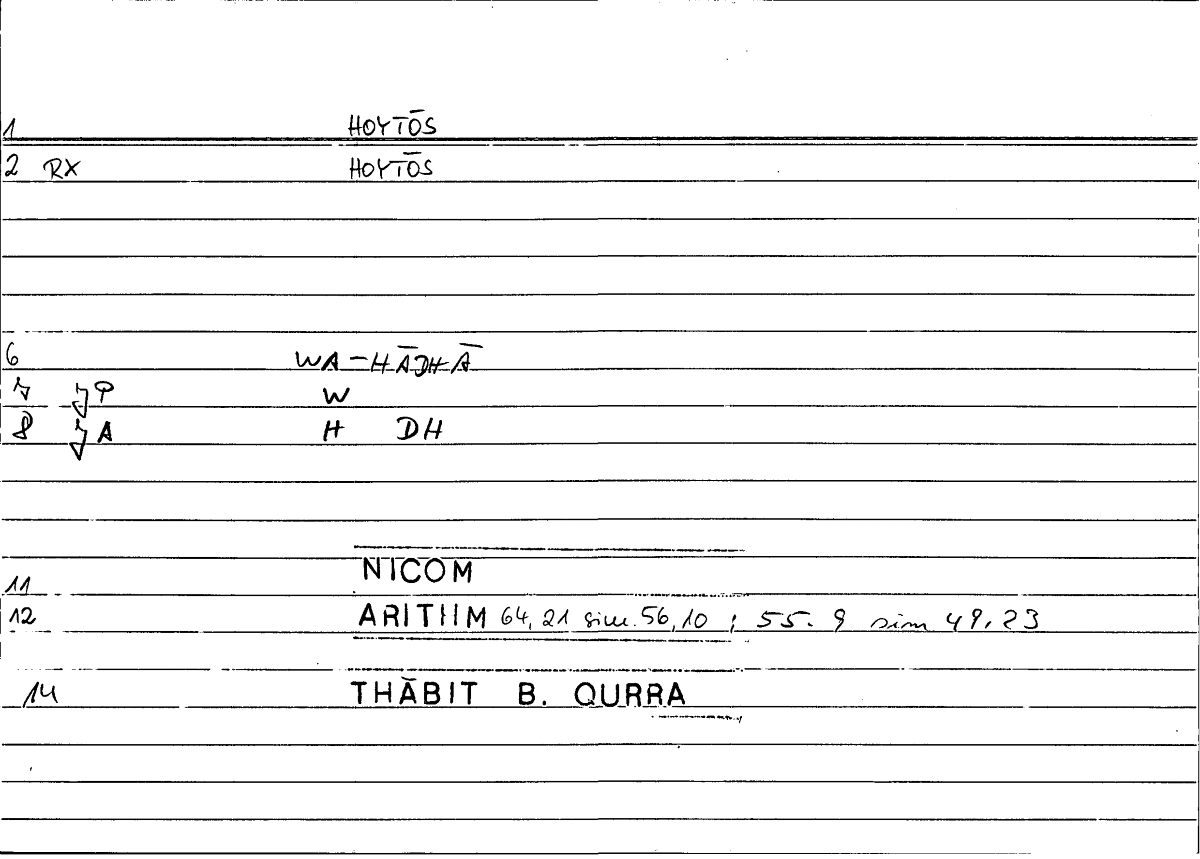 1 HOYTŌS
2 RX HOYTŌS
6 WA-HĀDHĀ
7 P W
8 A H DH
11 NICOM
12 ARITHM 64, 21 sim. 56, 10 ; 55. 9 sim 49. 23
14 THĀBIT B. QURRA